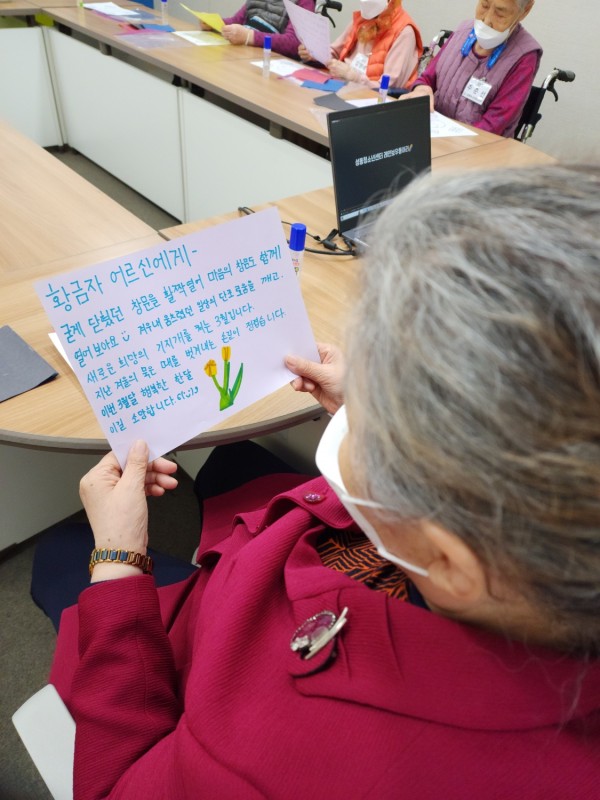 황금자 어르신에게-
굳게 닫혔던 창문을 활짝열어 마음의 창문도 함께
열어보아요 겨우내 움츠렸던 일상의 단조로움을 깨고,
새로운 희망의 기지개를 펴는 3월입니다.
지난 겨울의 묵은 때를 벗겨내는 손길이 정겹습니다
이번 3월달 행복한 한달
이길 소망합니다.